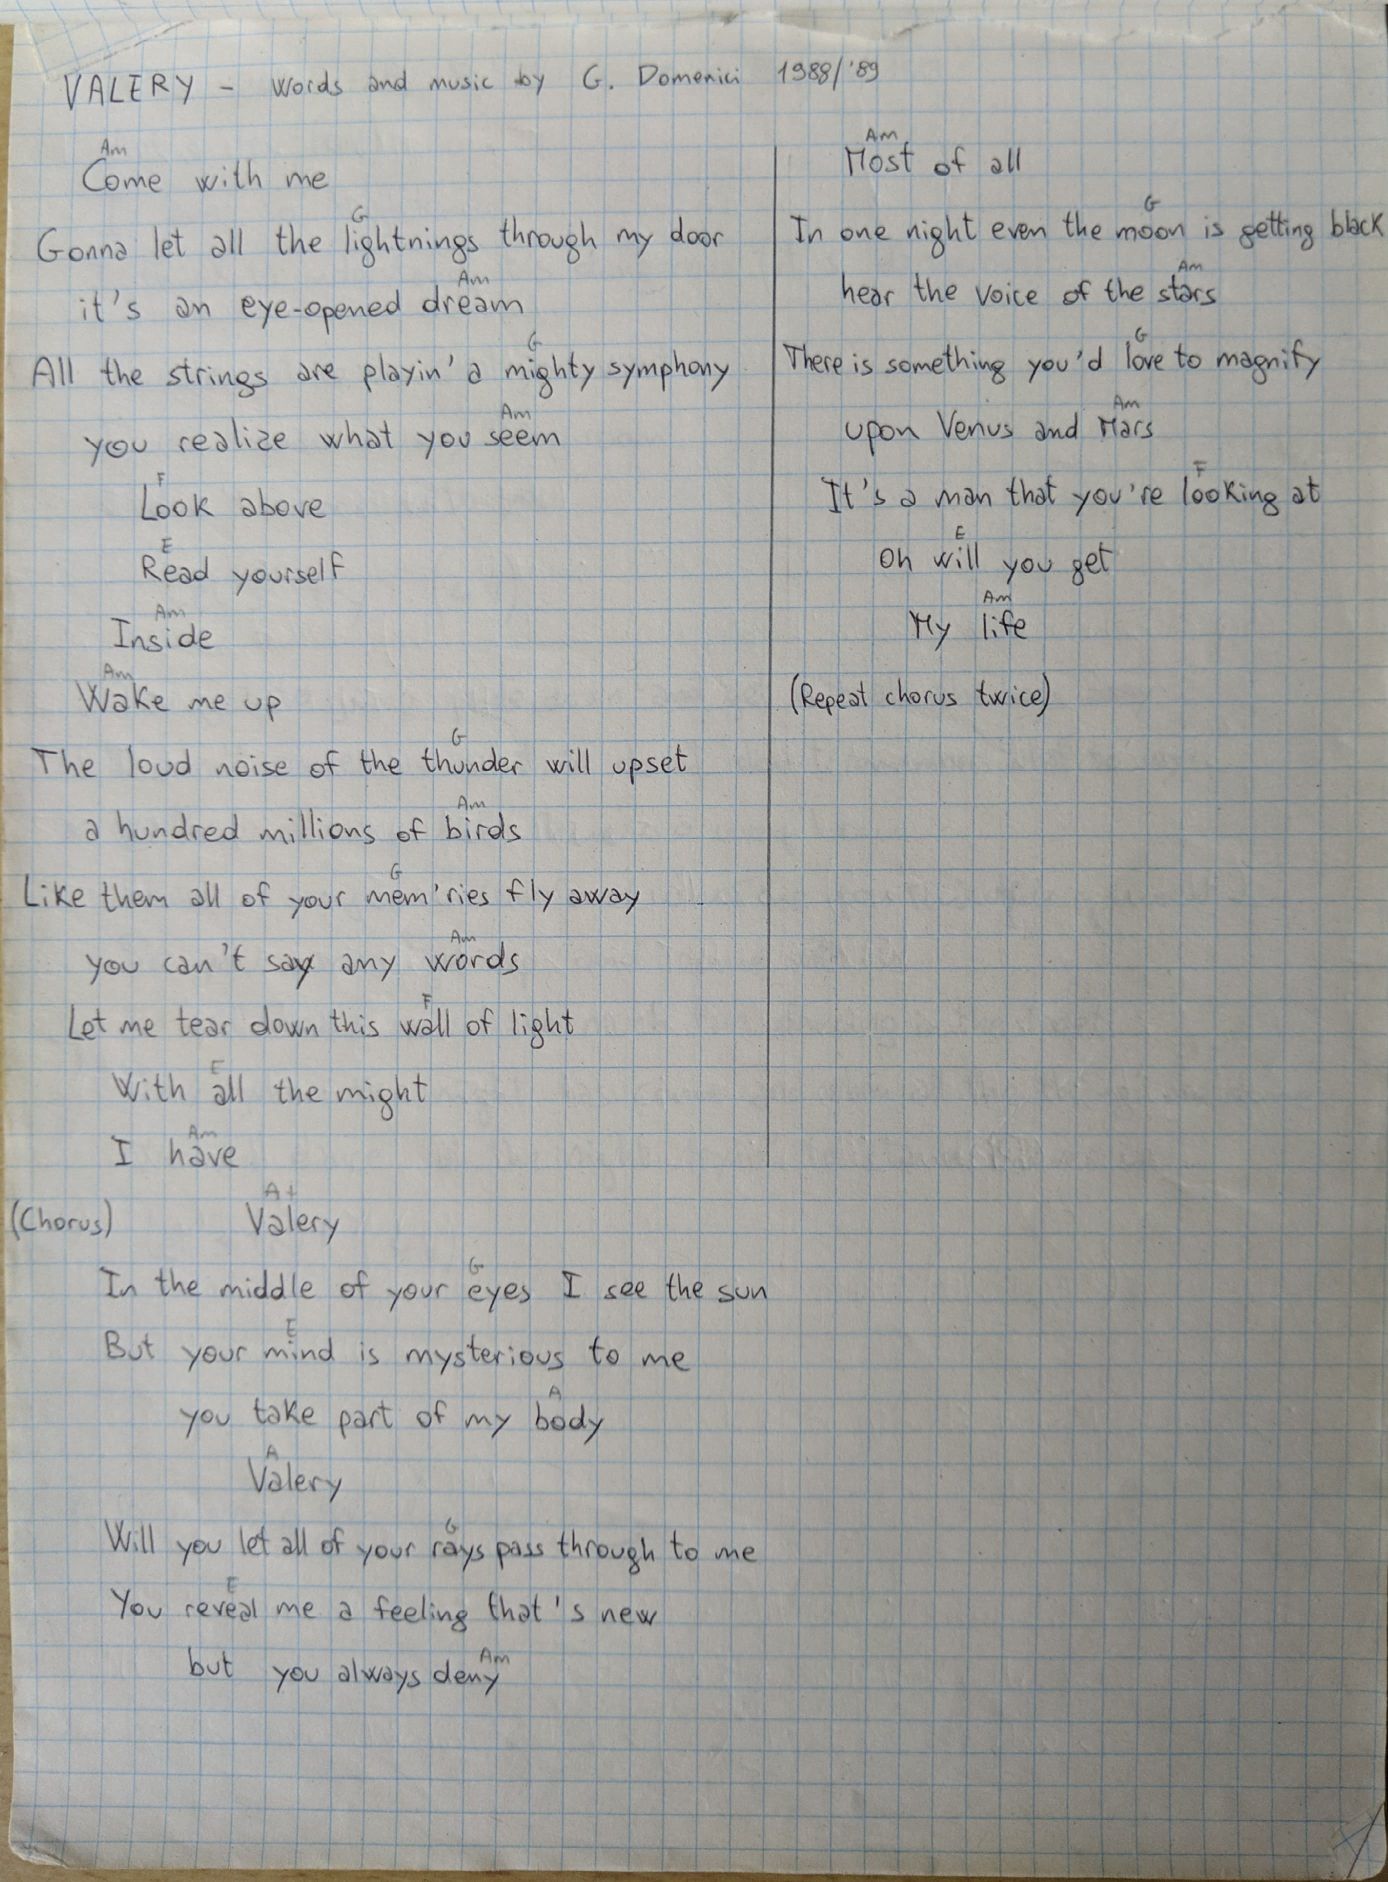 VALERY - Words and music by G. Domenici 1988/'89
Am
Come with me
G
Gonna let all the lightnings through my door
Am
it's an eye-opened dream
G
All the strings are playin' a mighty symphony
Am
you realize what you seem
F
Look above
E
Read yourself
Am
Inside
Am
Wake me up
G
The loud noise of the thunder will upset
Am
a hundred millions of birds
G
Like them all of your mem'ries fly away
Am
you can't say any words
F
Let me tear down this wall of light
E
With all the might
Am
I have
A+
(Chorus) Valery
G
In the middle of your eyes I see the sun
E
But your mind is mysterious to me
A
you take part of my body
A
Valery
G
Will you let all of your rays pass through to me
E
You reveal me a feeling that's new
Am
but you always deny
Am
Most of all
G
In one night even the moon is getting black
Am
hear the voice of the stars
G
There is something you'd love to magnify
Am
upon Venus and Mars
F
It's a man that you're looking at
E
Oh will you get
Am
My life
(Repeat chorus twice)